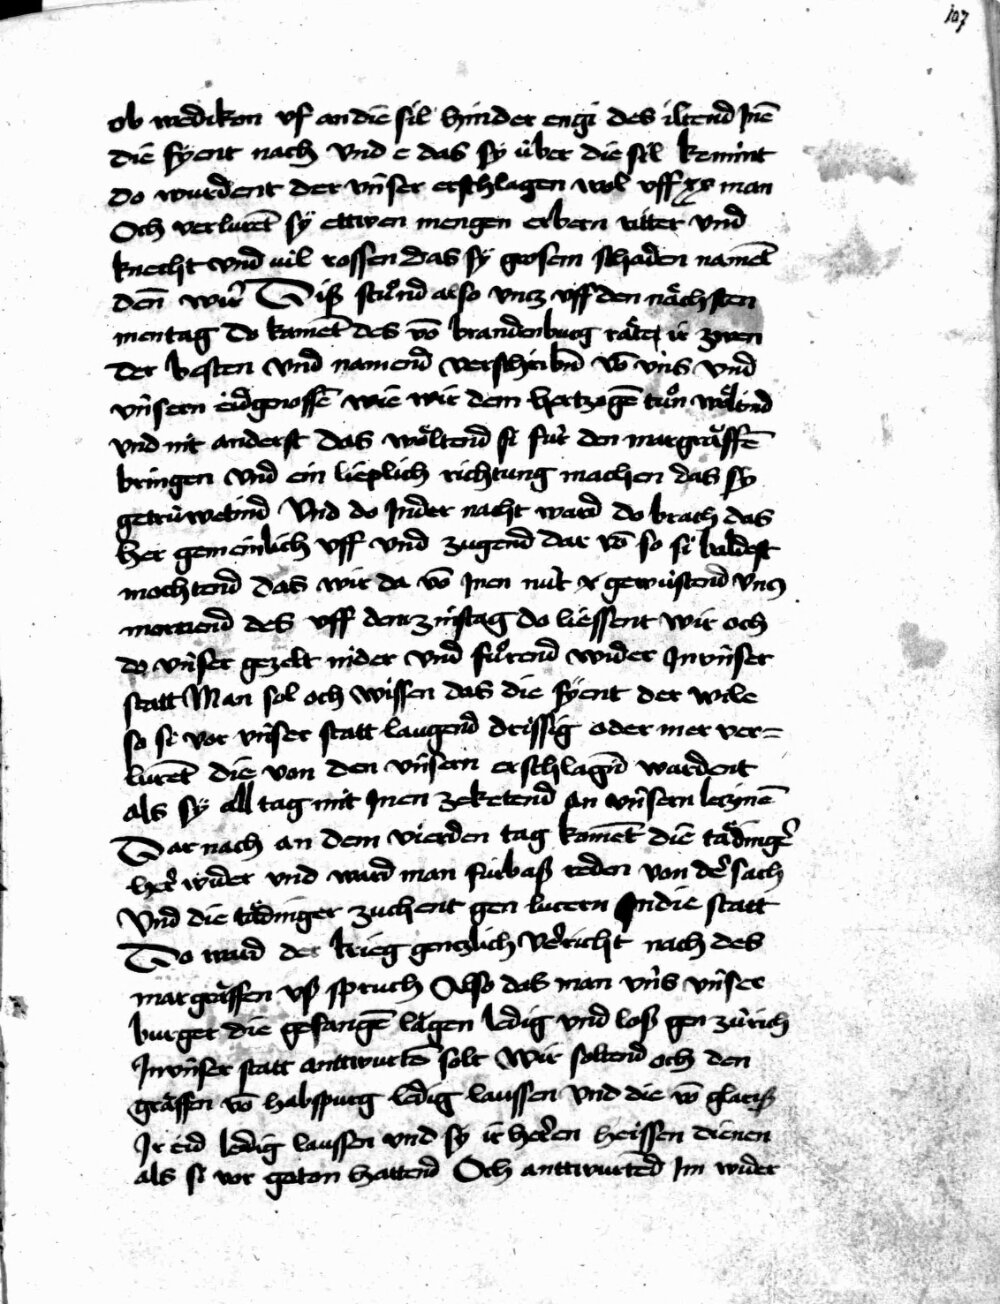 107
ob wedikon uf an die sil hinder engi des iltend Inē
die fyent nach vnd e das sy v̂ber die sil kemint
do wurdent der vn̂ser erschlagen wol vff xx man
Och verlurēt sy ettwen mengen erbern ritter vnd
knecht vnd vil rossen das sy grosem schaden namēt
denn wir Diß stůnd also vncz vff den nächsten
mentag do kamēt des vō brandenburg rätt ir zwen
der besten vnd namend verschribn̄ vō vn̂s vnd
vn̂sern eidgenossē wie wir dem hertzogē tůn wöltind
vnd nit anderst das wöltend si fu̍r den margräffē
bringen vnd ein lieplich richtung machen das sy
getru̍wetind Vnd do In der nacht ward do brach das
her gemeinlich vff vnd zugend dar vō so si baldest
mochtend das wir da vō Inen nu̍t gewu̍stend vncz
mornend des vff den zinstag do liessent wir och
do vn̂ser gezelt nider vnd fůrend wider In vn̂ser
statt Man sol och wissen das die fyent der wile
so si vor vn̂ser statt laugend drissig oder mer ver=
lurēt die von den vn̂sern erschlagn̄d wardent
als sy all tag mit Inen zeketend an vn̂sern leczinē
Dar nach an dem vierden tag kamēt die tädingˀ
herˀ wider vnd ward man fu̍rbaß reden von derˀ sach
Vnd die tädinger zuchent gen lucern In die statt
Do ward der krieg genczlich verˀricht nach des
margräffen vß spruch Also das man vn̂s vn̂ser
burger die gefangē lägen ledig vnd loß gen zu̍rich
In vn̂ser statt anttwurtē solt Wir soltend och den
gräffen vō habspurg ledig laussen vnd die vō glariß
Ir eid ledig laussen vnd sy ir herˀen heissen dienen
als si vor geton hattend Och anttwurted Im wider